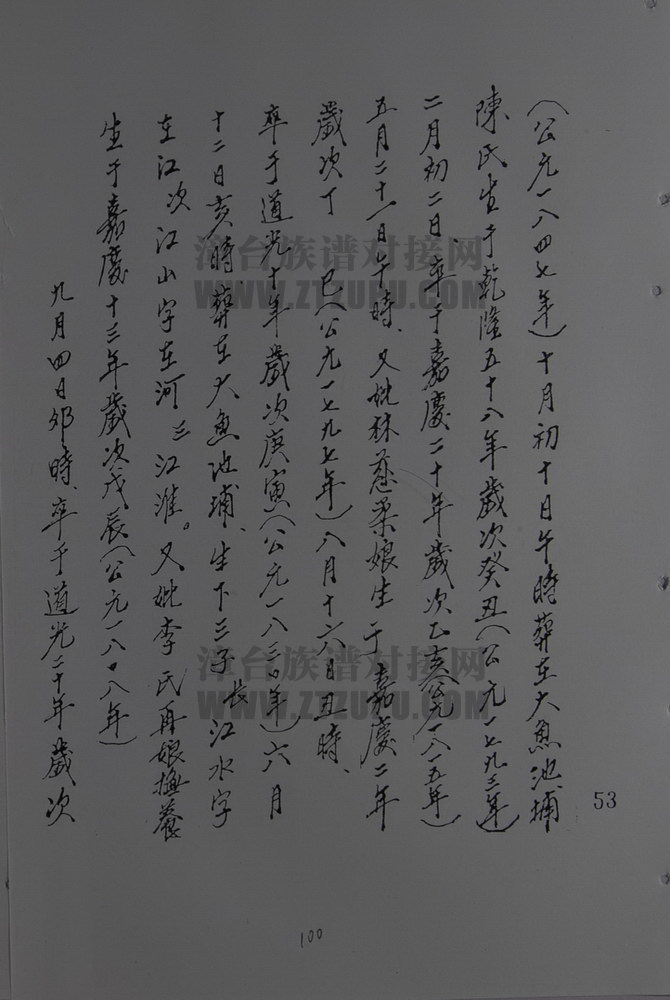 (公元一八四七年)十月初十日午時葬在大魚池埔
陳氏生于乾隆五十八年歲次癸丑(公元一七九三年)
二月初二日、卒于嘉慶二十年歲次乙亥(公元一八一五年)
五月二十一日午時、又妣林慈柔娘生于嘉慶二年
歲次丁巳(公元一七九七年)八月十六日丑時、
卒于道光十年歲次庚寅(公元一八三〇年)六月
十二日亥時葬在大魚池埔、生下三子長江水字
在江次江山字在河三江淮。又妣李氏再娘撫養
生于嘉慶十三年歲次戊辰(公元一八〇八年)
九月四日卯時、卒于道光二十年歲次
53
100
漳台族谱对接网
WWW.ZTZUPU.COM
漳台族谱对接网
WWW.ZTZUPU.COM